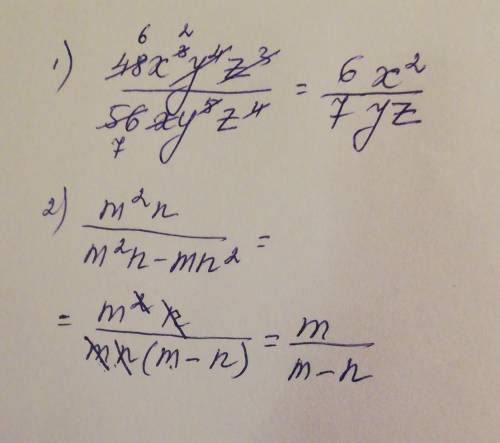 1) 48x³y⁴z³ / 56xy⁵z⁴ = 6x² / 7yz
6 2
7
2) m²n / m²n - mn² =
= m²n / mn(m - n) = m / m - n